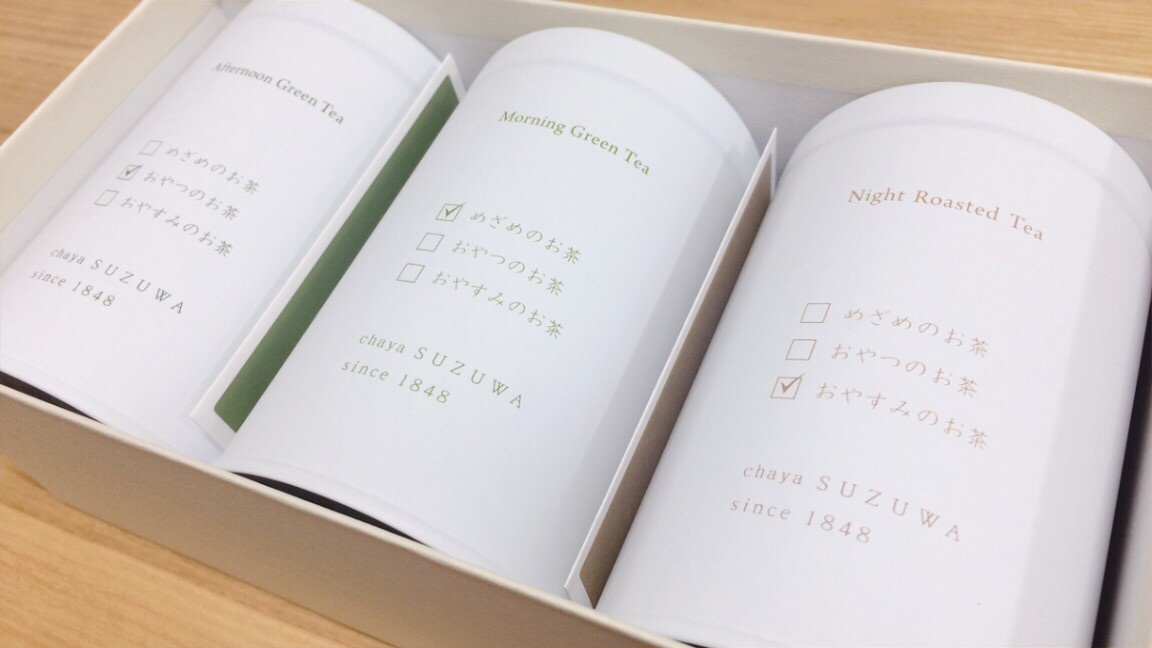 Afternoon Green Tea
めざめのお茶
おやつのお茶
おやすみのお茶
chaya SUZUWA
since 1848
Morning Green Tea
めざめのお茶
おやつのお茶
おやすみのお茶
chaya SUZUWA
since 1848
Night Roasted Tea
めざめのお茶
おやつのお茶
おやすみのお茶
chaya SUZUWA
since 1848